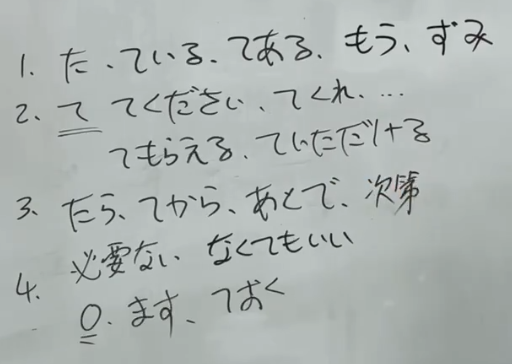 1. た、ている、てある、もう、ずみ
2. て てください、てくれ、…
てもらえる、ていただける
3. たら、てから、あとで、次第
必要ない なくてもいい
4. O. ます、ておく